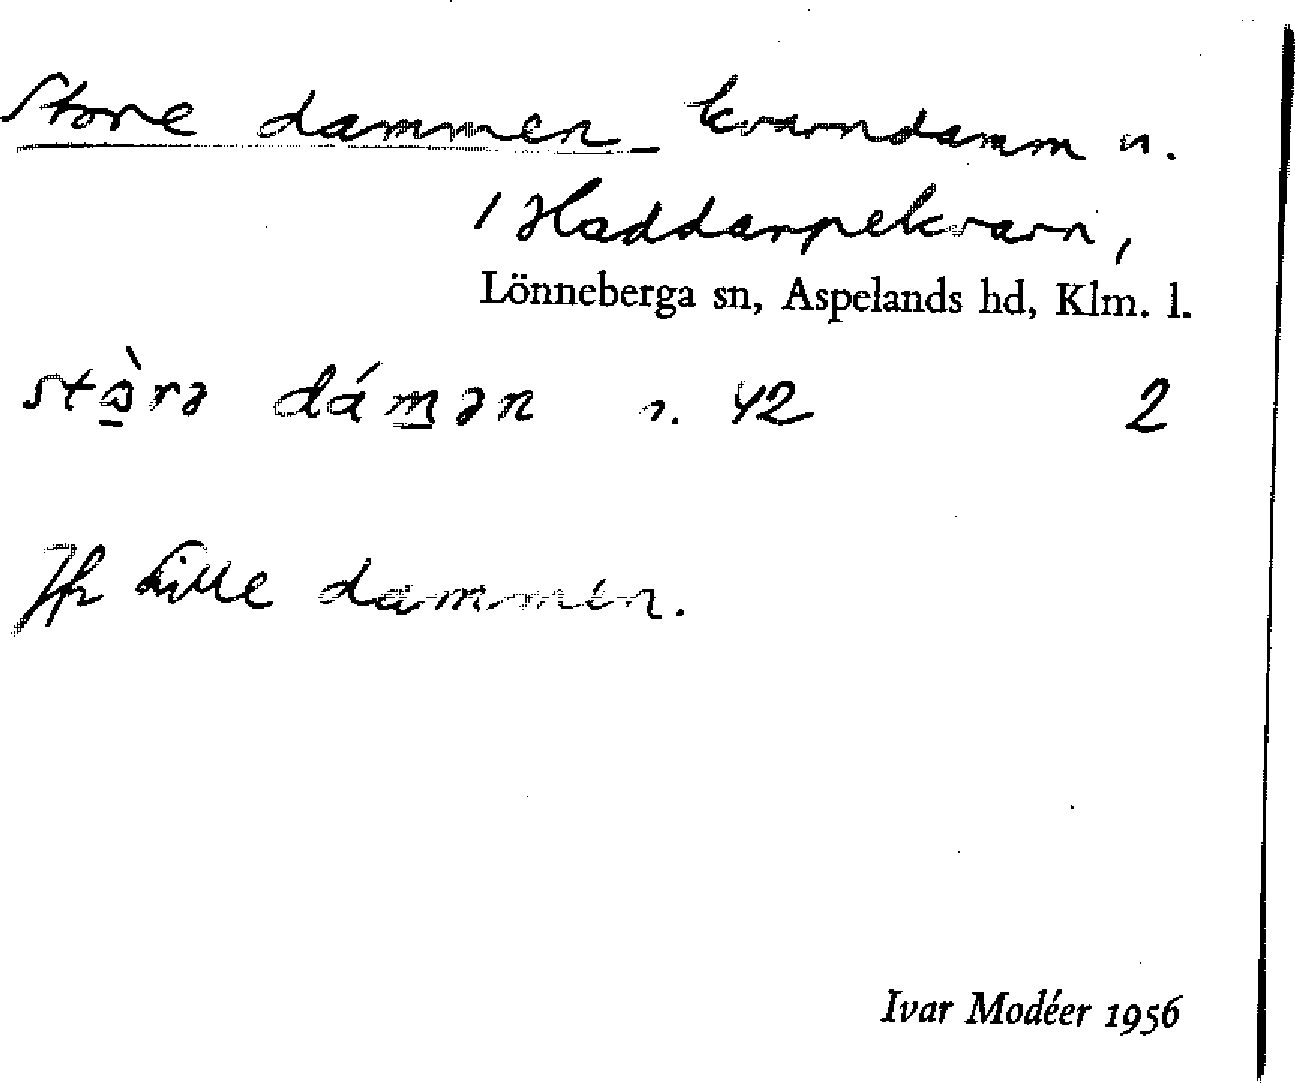 Store dammen kvarndamm n.
/ Haddarpekvarn,
Lönneberga sn, Aspelands hd, Klm. l.
stò̠rə dám̠ən n. 42 2
Jfr Lille dammen.
Ivar Modéer 1956